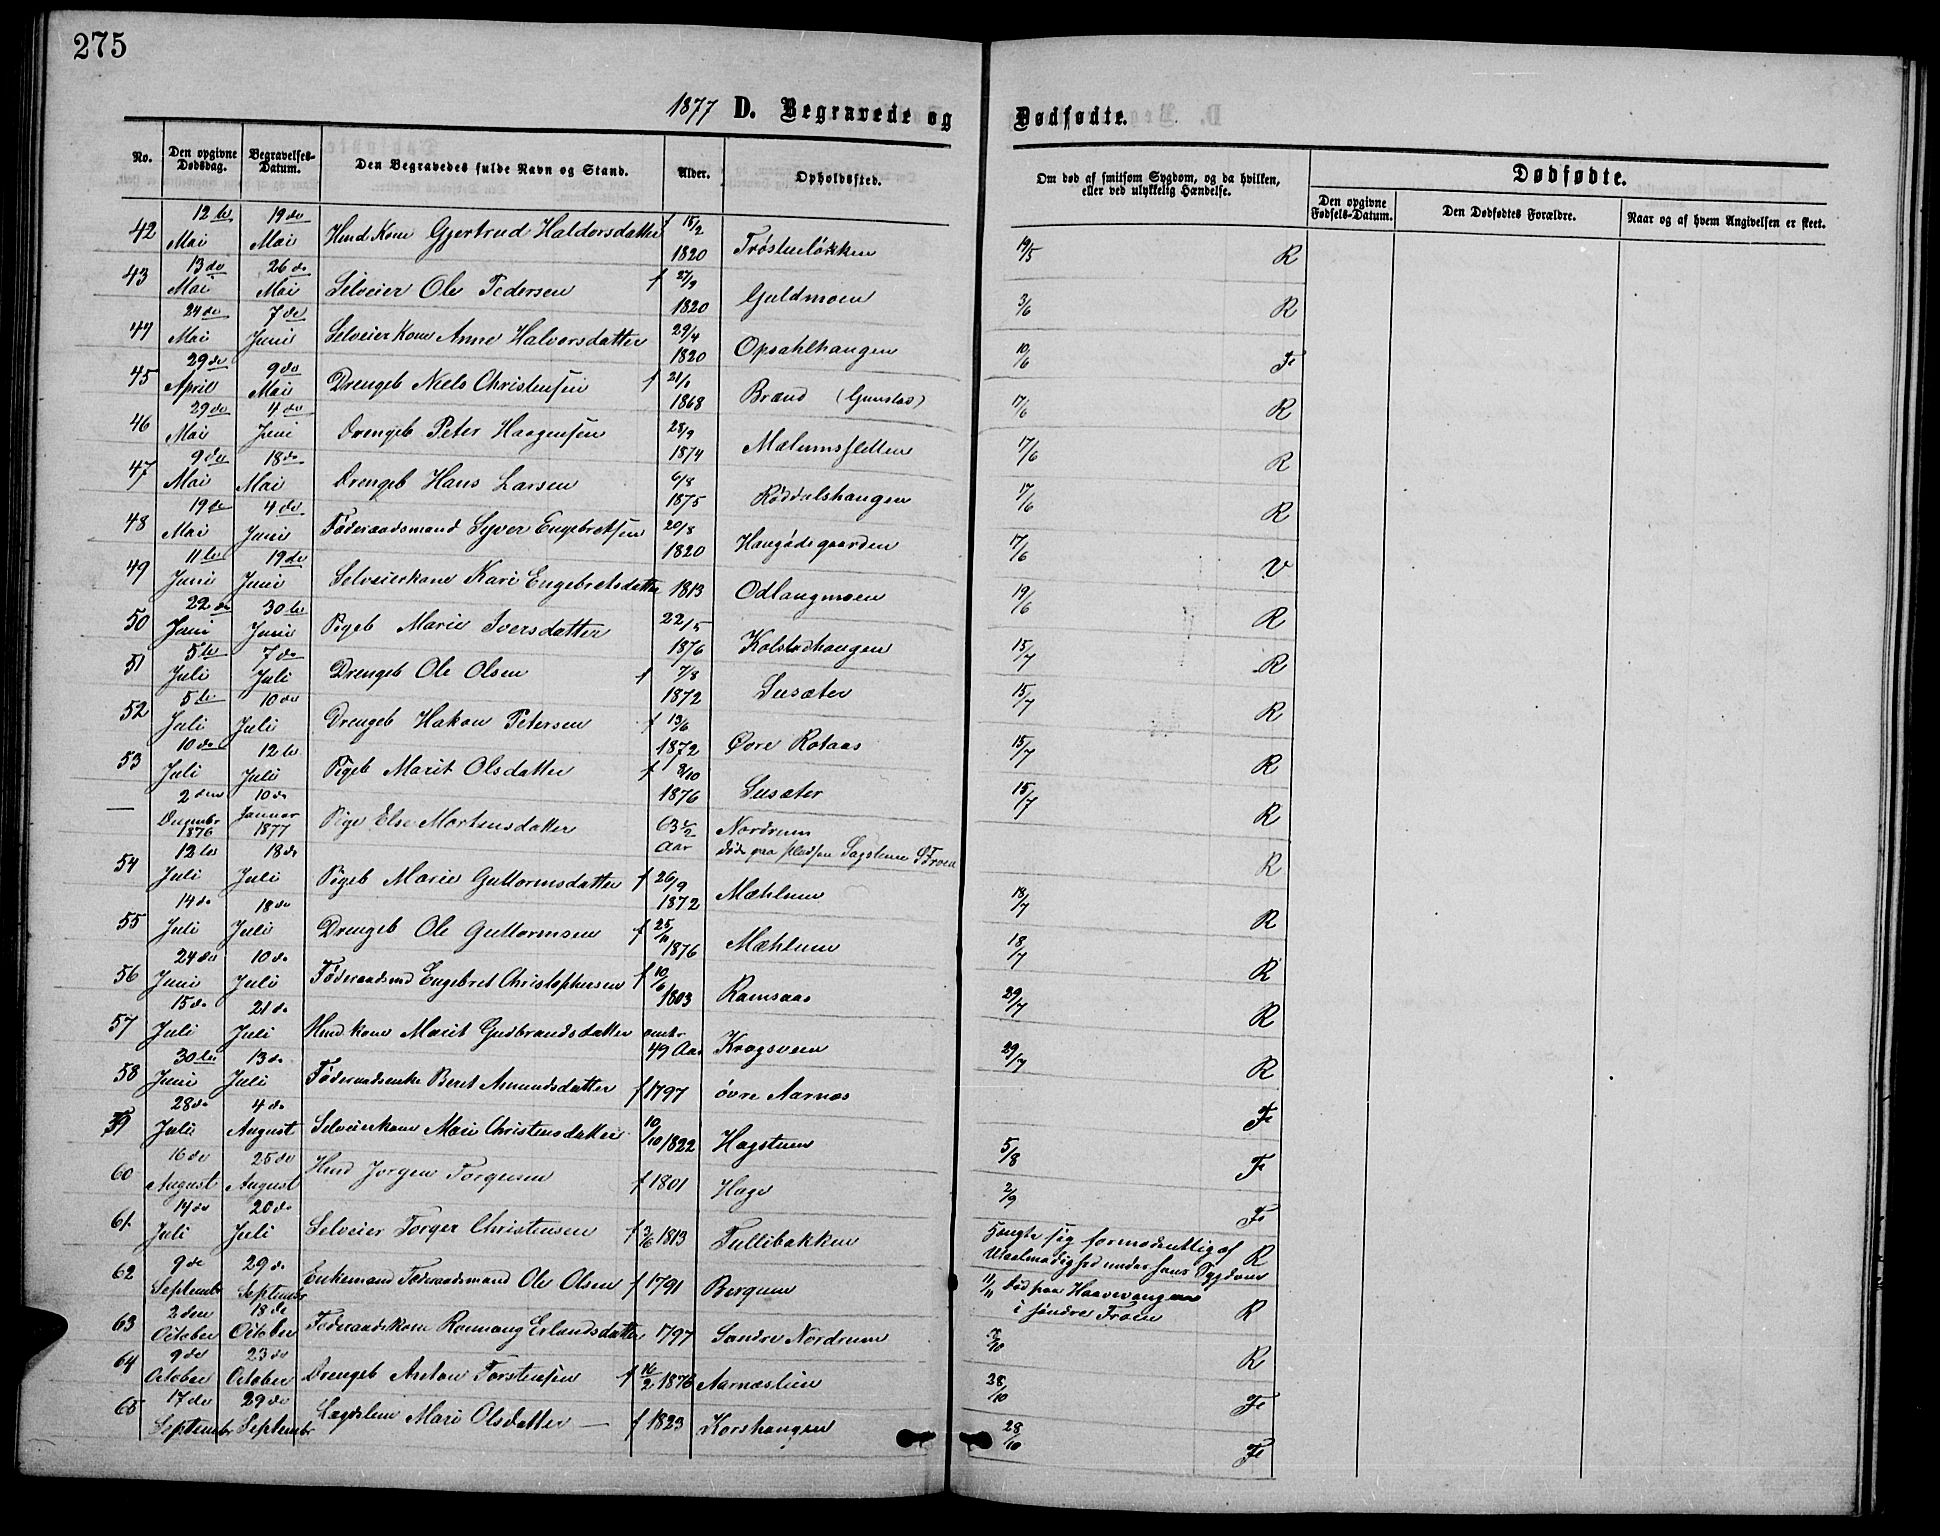 275
1877 D. Begravede og Dødfødte.
No. Den opgivne Dødsdag. Begravelses-Datum. Den Begravedes fulde Navn og Stand. Alder. Opholdssted. Om død af smitsom Sygdom, og da hvilken, eller ved ulykkelig Hændelse. Dødfødte.
Den opgivne Fødsels-Datum. Den Dødfødtes Forældre. Naar og af hvem Angivelsen er skeet.
42 12te Mai 19de Mai Hmd Kone Gjertrud Haldorsdatter f 15/2 1820 Trøstueløkken 19/5 R
43 13de Mai 26de Mai Selveier Ole Pedersen f 27/9 1820 Guldmoen 3/6 R
44 24de Mai 7de Juni Selveier Kone Anne Halvorsdatter 29/4 1820 Opsahlhaugen 10/6 F
45 29de April 9de Mai Drengeb Niels Christensen f 21/1 1868 Brænd 17/6 R
46 29de Mai 4de Juni Drengeb Peter Haagensen 28/9 1874 Mælumsfletten 17/6 R
47 9de Mai 18de Mai Drengeb Hans Larsen 6/8 1875 Køddalshaugen 17/6 R
48 19de Mai 4de Juni Føderaadsmand Syver Engebretsen 20/8 1820 Haugødegaarden 17/6 V
49 11te Juni 19de Juni Selveierkone Kari Engebretsdatter 1813 Odlaugmoen 19/6 R
50 22de Juni 30te Juni Pigeb Marie Iversdatter 22/5 1876 Kolstadhaugen 15/7 R
51 5te Juli 7de Juli Drengeb Ole Olsen f 7/8 1872 Lusæter 15/7 R
52 5te Juli 10de Juli Drengeb Hakon Petersen f 13/6 1872 Øvre Rotaas 15/7 R
53 10de Juli 12te Juli Pigeb Marit Olsdatter f 9/10 1876 Lusæter 15/7 R
— 2den Decembr 1876 10de Januar 1877 Pige Else Mortensdatter 63 1/2 Aar Nordrum
døde paa pladsen Sagstuen S Froen R
54 12te Juli 18de Juli Pigeb Marie Guttormsdatter f 26/9 1872 Mæhlum 18/7 R
55 14de Juli 18de Juli Drengeb Ole Guttormsen f 25/11 1876 Mæhlum 18/7 R
56 24de Juni 10de Juli Føderaadsmd Engebret Christophersen f 10/6 1803 Ramsaas 29/7 R
57 15de Juli 21de Juli Hmd. kone Marit Gudbrandsdatter omtr 49 Aar Kragsveen 29/7 R
58 30te Juni 13de Juli Føderaadsenke Beret Amundsdatter f 1797 øvre Aarnæs F
59 28de Juli 4de August Selveierkone Mari Christensdatter 10/10 1822 Hagstuen 5/8 F
60 16de August 25de August Hmd Jørgen Torgersen f 1801 Hage 2/9 F
61 14de Juli 20de Juli Selveier Torger Christensen f 3/6 1813 Tullibakken Hængte sig formodentlig af
under hans Sygdom R
62 9de Septembr 29de Septembr Enkemand Føderaadsmand Ole Olsen f 1791 Bergum 11/11 død paa Haavevangen
i søndre Froen R
63 2den October 18de October Føderaadskone Rønnaug Erlandsdatter 1797 Søndre Nordrum 7/10 R
64 9de October 23de October Drengeb Anton Torstensen f 16/2 1876 Aarnæslien 28/10 F
65 17de Septembr 29de Septembr Lægdslem Mari Olsdatter — f 1823 Korshaugen 28/10 F